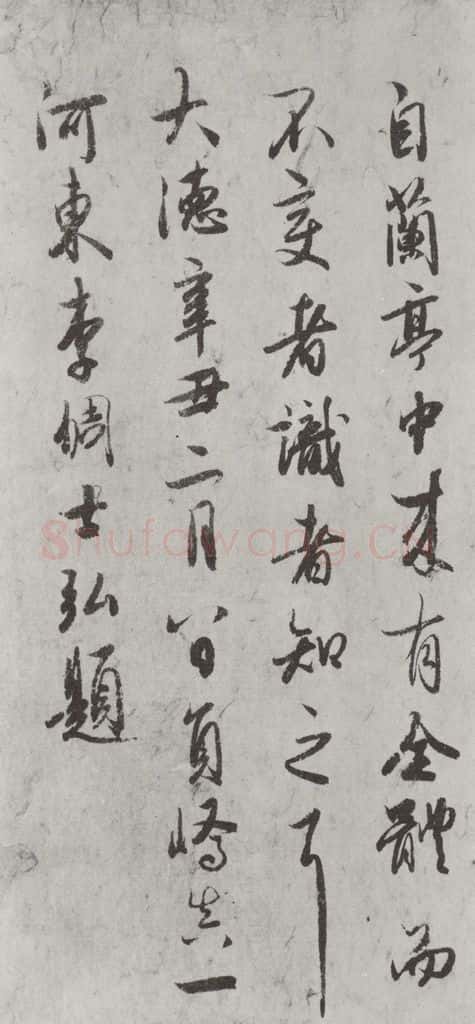 自蘭亭中来有全體而
不变者識者知之耳
大德辛丑二月八日員嶠真一
河東李倜士弘題
Shufawang.CN